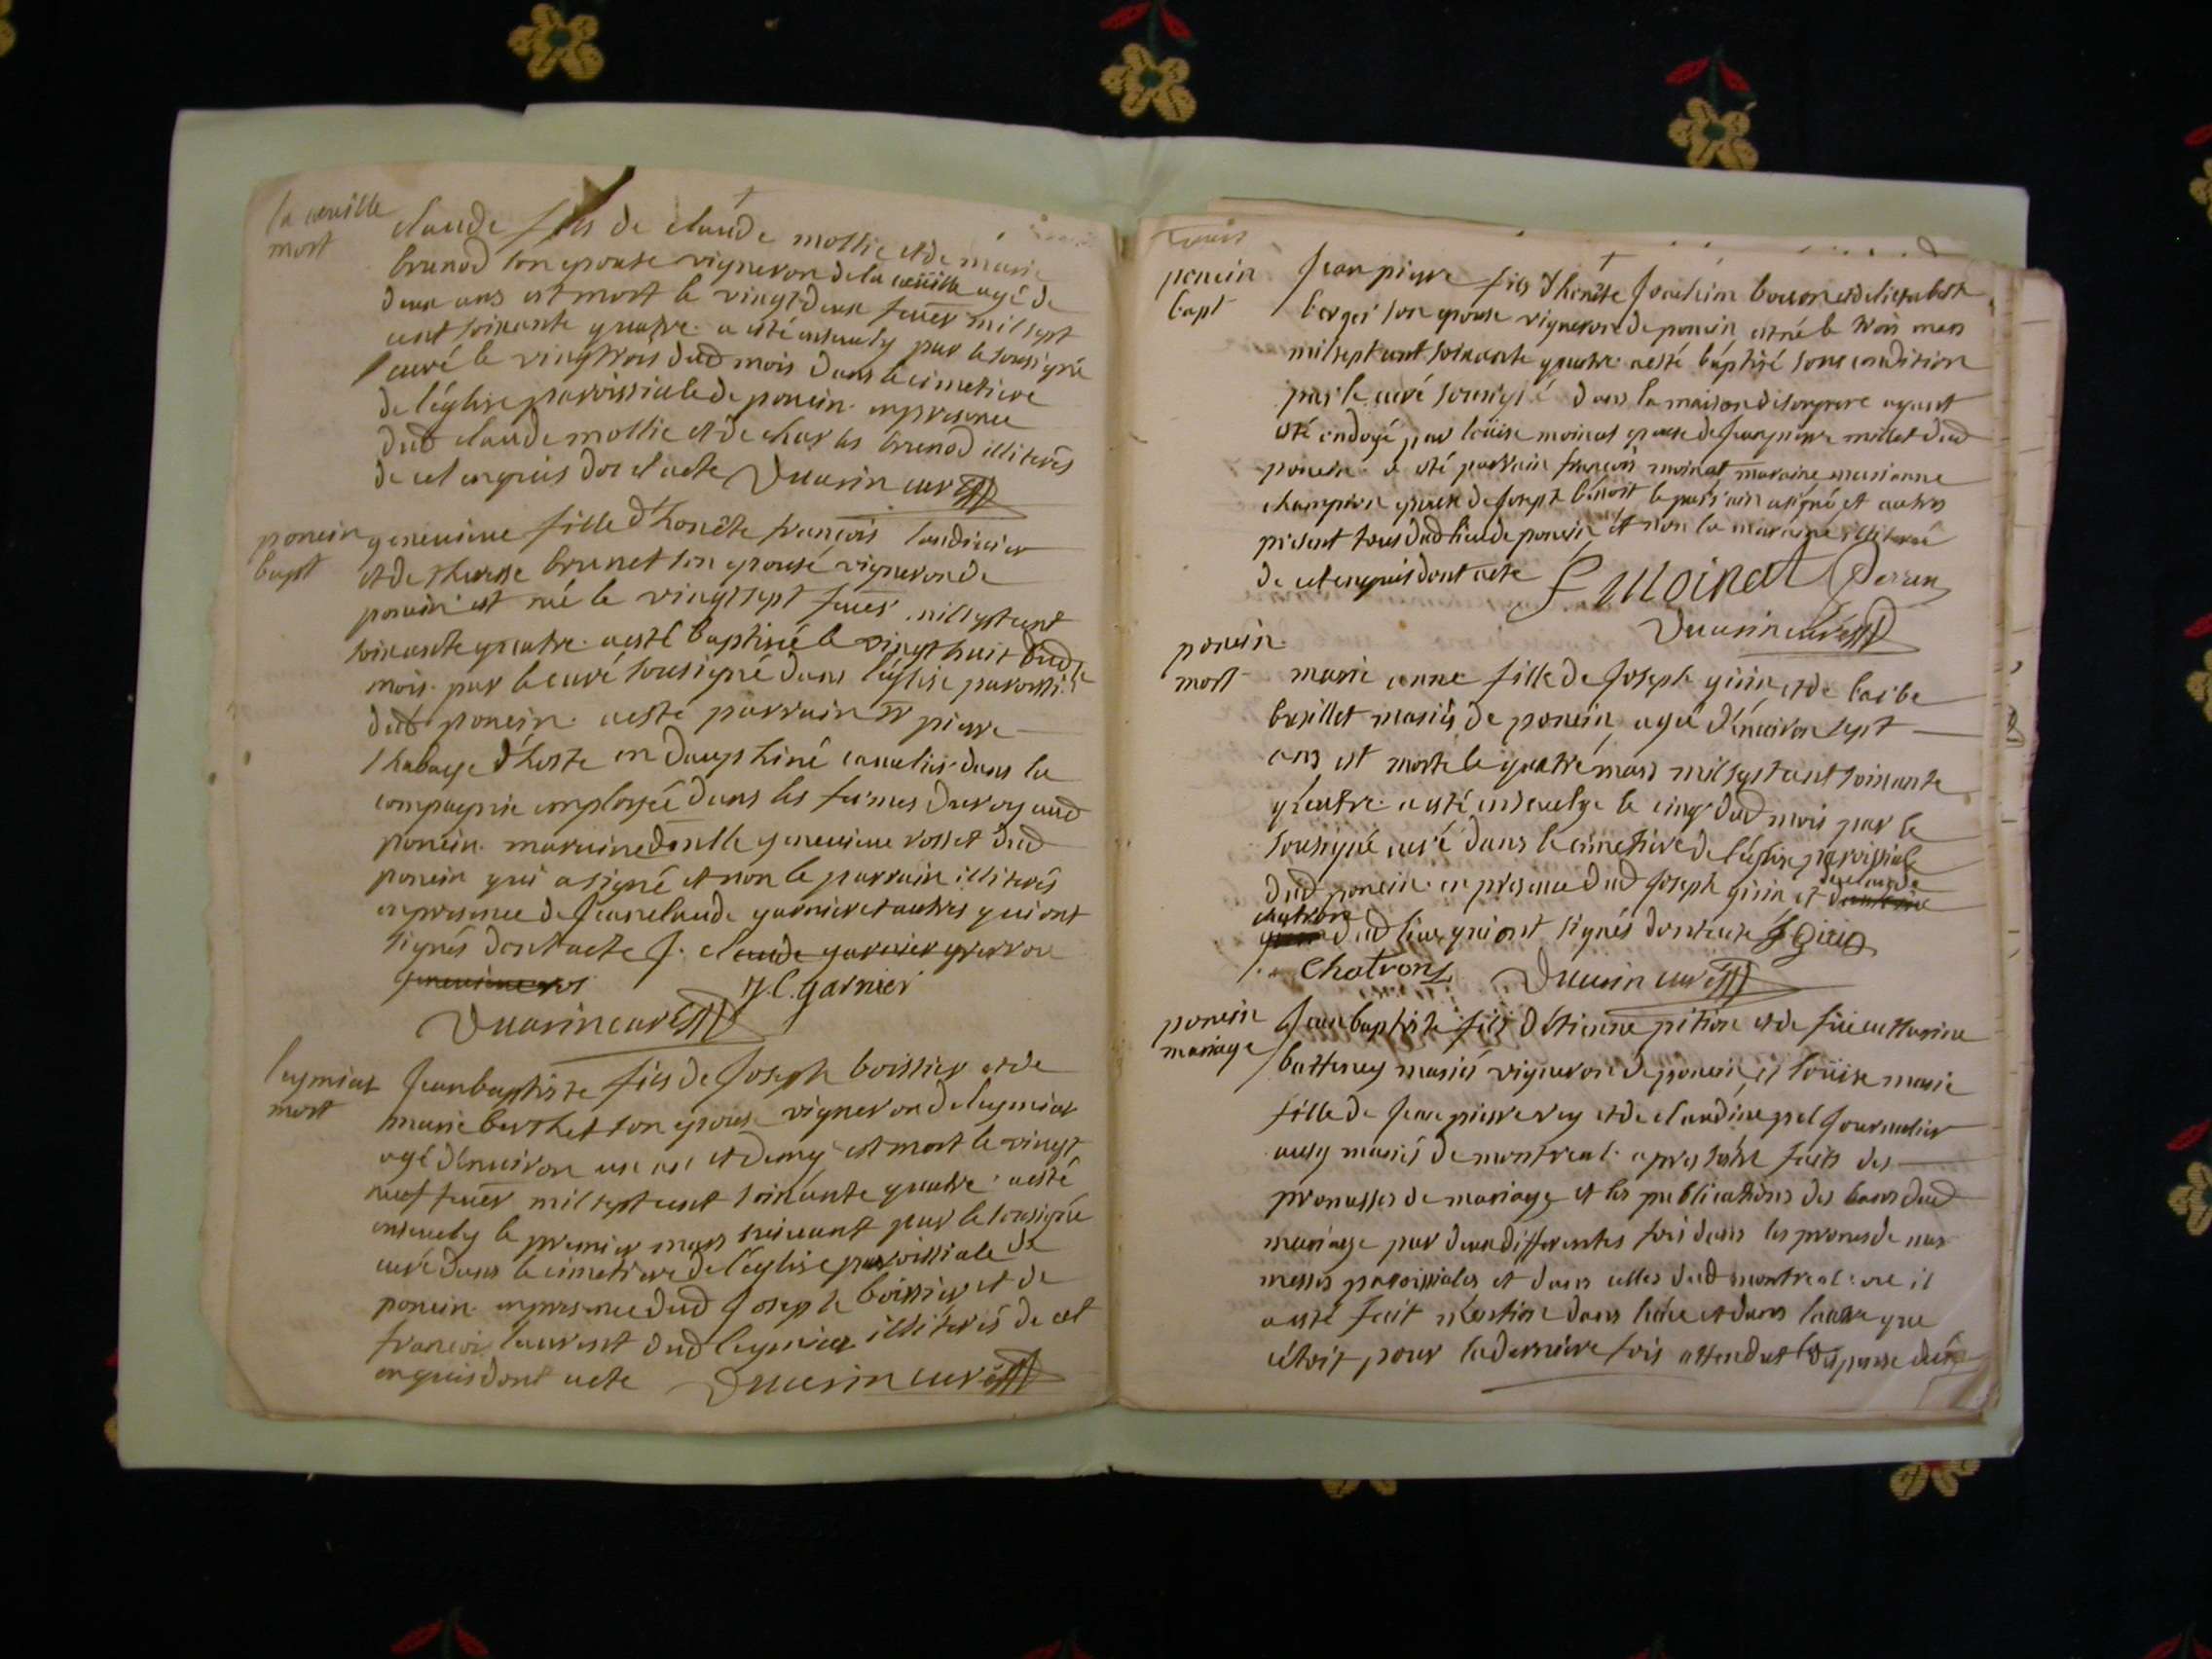 la cueille
mort
claude fils de claude mollie et de marie
brunod son epouse vigneron de la cueille agé de
deux ans est mort le vingt deux feuer mil sept
cent soixante quatre a esté ensevely par le sousigné
curé le vingt trois dud mois dans le cimetiere
de l'églize paroissiale de poncin en presence
dud claude mollie et de charles brunod illiterés
de cet enquis dont acte Duasin curé
poncin
bapt
genevieve fille d'honête françois landinier
et de therese brunet son epouse vigneron de
poncin est né le vingt sept feuer mil sept cent
soixante quatre a esté baptisé le vingt huit dud
mois par le curé sousigné dans l'églize paroissile
dud poncin a esté parrain Sr pierre
chabaye d'hoste en dauphiné cavalier dans la
compagnie employée dans les fermes du roy aud
poncin maraine genevieve rosset dud
poncin qui a signé et non le parrain illiterés
en presence de Jeanclaude garnier et autres qui ont
signés dont acte J. claude garnier
J.C. garnier
Duasin curé
leymiat
mort
Jean baptiste fils de Joseph boissier et de
marie berthet son epouse vigneron de leymiat
agé d'environ un an et demy est mort le vingt
neuf feuer mil sept cent soixante quatre a esté
ensevely le premier mars suivant par le sousigné
curé dans le cimetiere de l'églize paroissiale de
poncin en presence dud Joseph boissier et de
françois laurent dud leymiat illiterés de cet
enquis dont acte Duasin curé
mars
poncin
bapt
Jean pierre fils d'honête Joachim bozon et d'elisabeth
berger son epouse vigneron de poncin est né le trois mars
mil sept cent soixante quatre a esté baptisé sous condition
par le curé sousigné dans la maison de son pere ayant
été ondoyé par loüise moinat epouse de Jean pierre millet dud
poncin a esté parrain françois moinat maraine marianne
champion epouse de Joseph bénoit le parrain a signé et autres
present tous dud lieu de poncin et non la maraine illiterée
de cet enquis dont acte F Moinat Perren
Duasin curé
poncin
mort
marie anne fille de Joseph girin et de barbe
basillet mariés de poncin agée d'environ sept
ans est morte le quatre mars mil sept cent soixante
quatre a esté ensevelye le cinq dud mois par le
sousigné curé dans le cimetiere de l'églize paroissiale
dud poncin en presence dud Joseph girin et de claude
chatron dud lieu qui ont signés dont acte J Girin
Chatron Duasin curé
poncin
mariage
Jean baptiste fils d'étienne pition et de füe catherine
batteney mariés vigneron de poncin, et loüise marie
fille de Jean pierre rey et de claudine pel Journalier
aussy mariés de montreal apres s'etre faits des
promesses de mariage et les publications des bans dud
mariage par deux differentes fois dans les prones de nos
messes paroissiales et dans celles dud montreal ou il
a esté fait mention dans l'une et dans l'autre que
c'étoit pour la derniere fois attendu la dispense